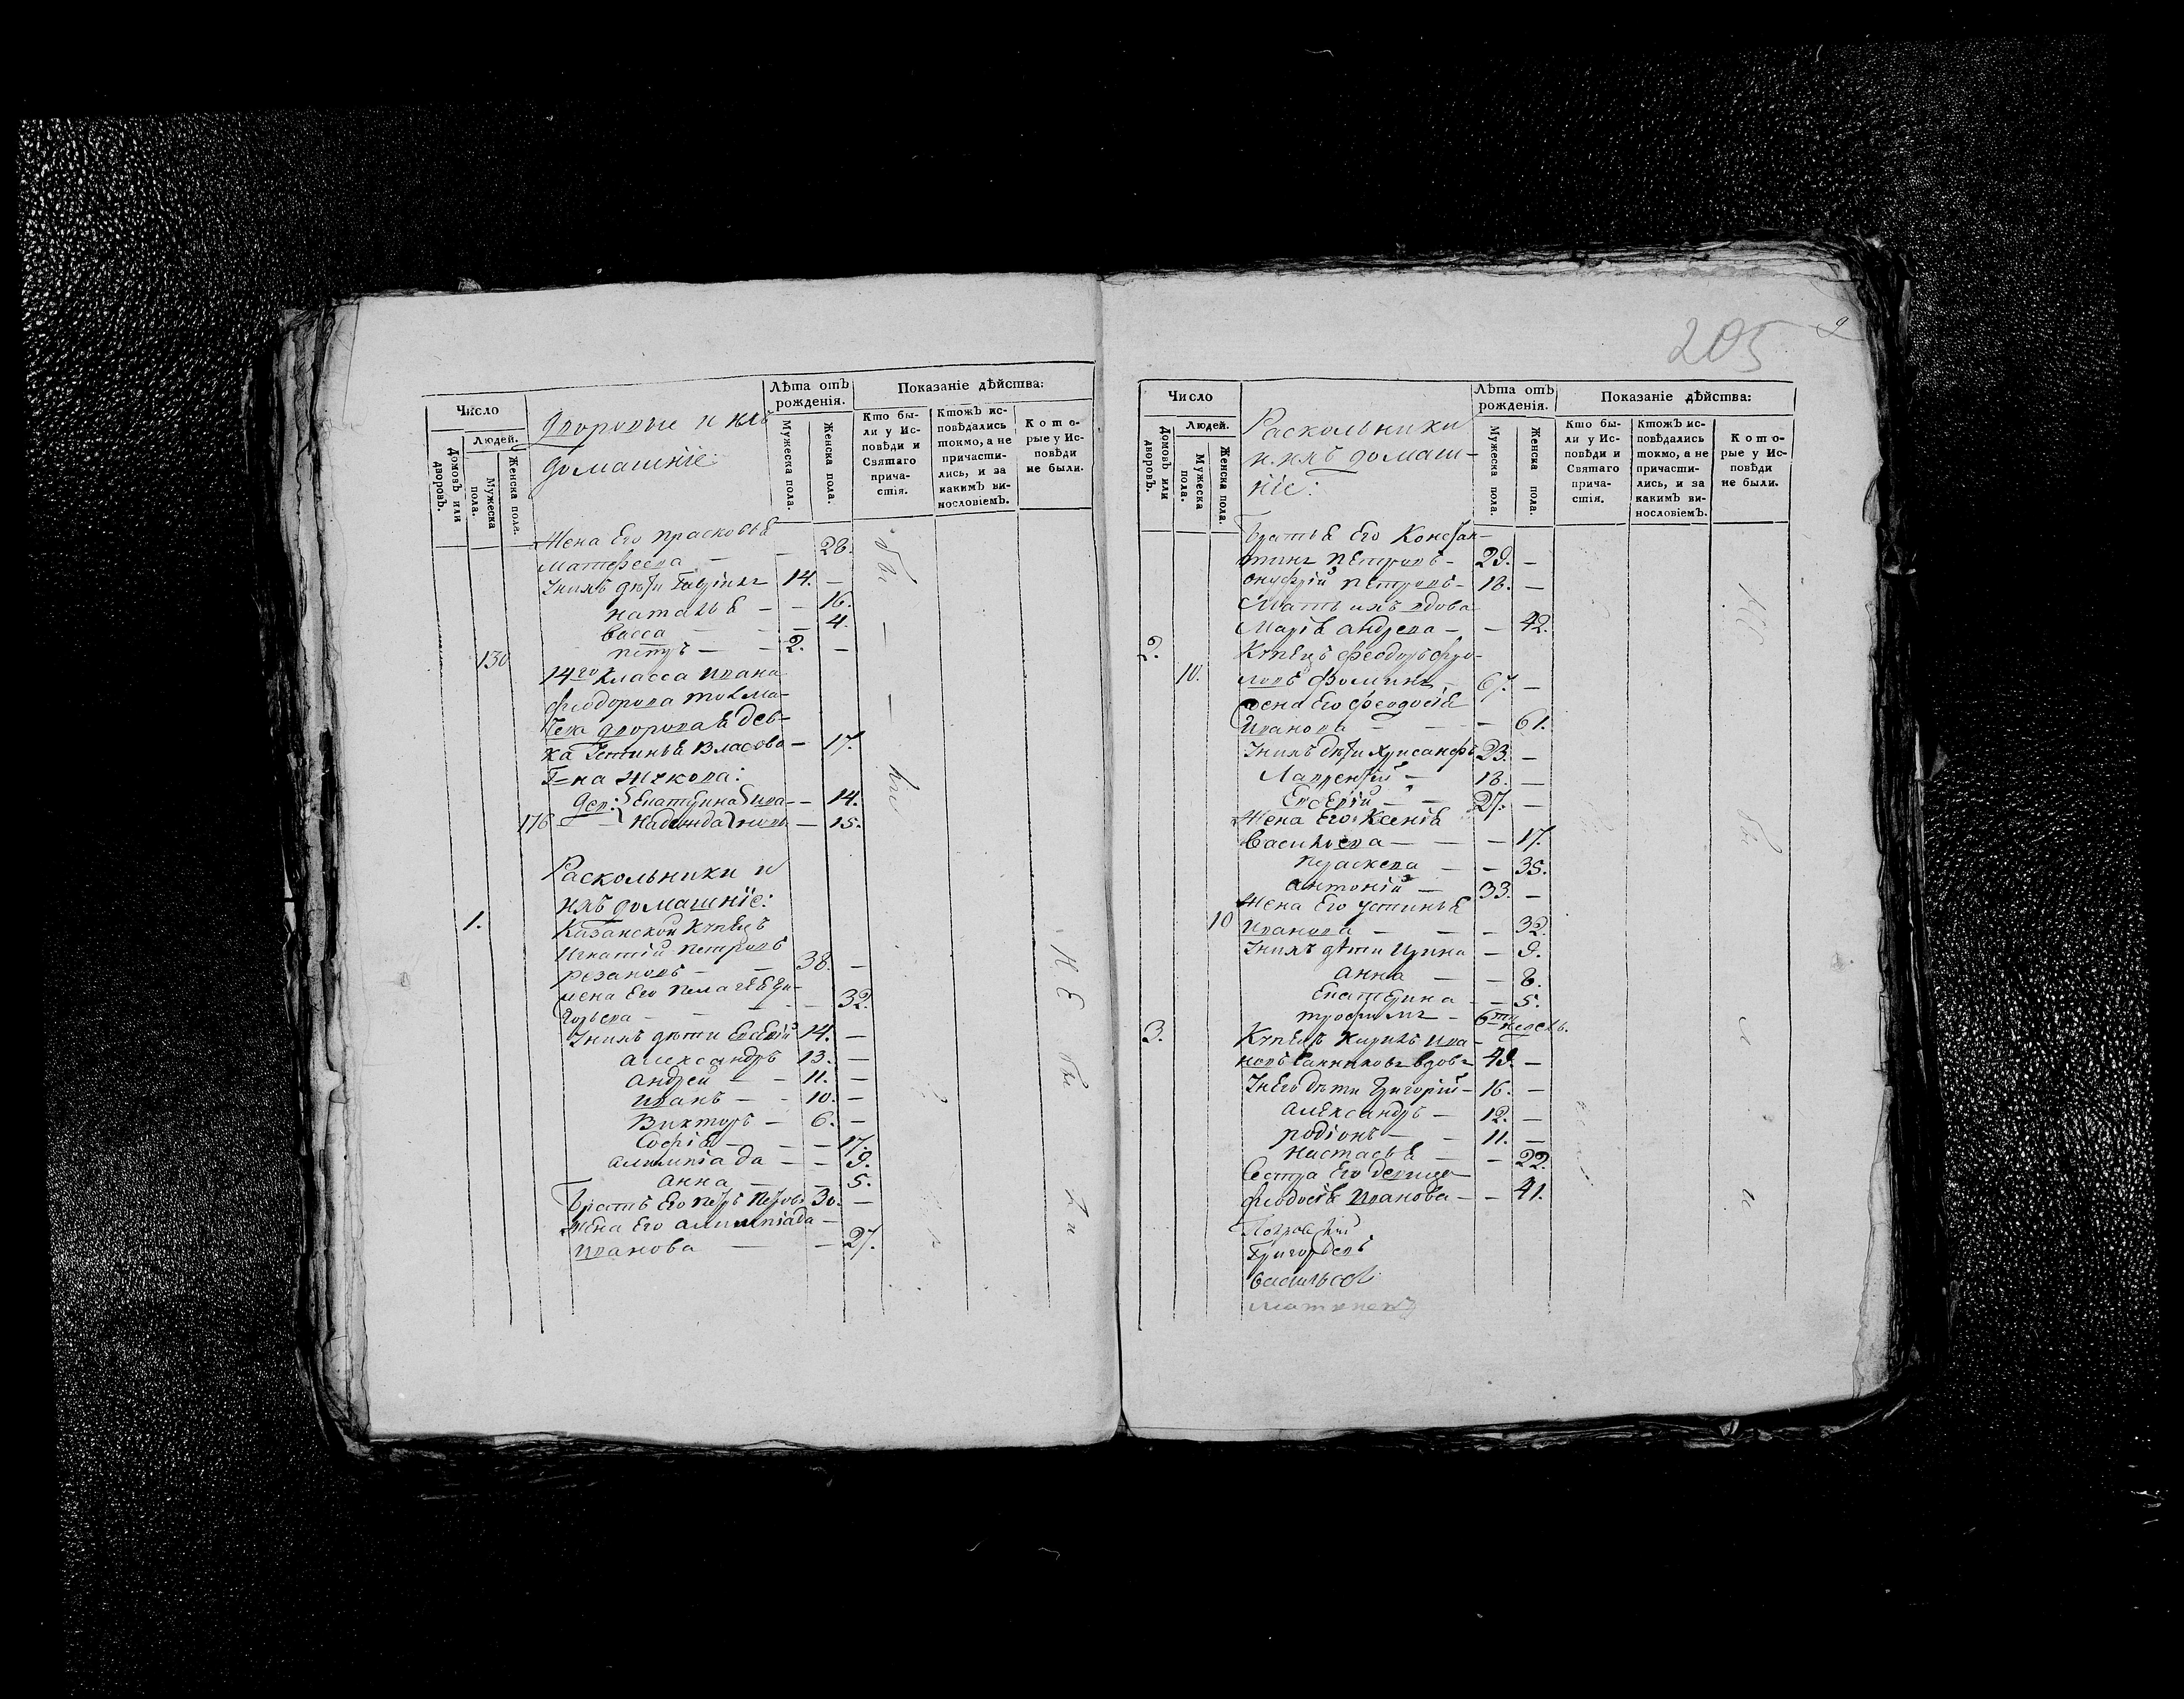 Число
Домовъ или дворовъ.
Людей.
Мужеска пола.
Женска пола.
дворовые и ихъ
домашніе:
Лѣта отъ рожденія.
Мужеска пола.
Женска пола.
Показаніе дѣйства:
Кто были у Исповѣди и Святаго причастія.
Ктожъ исповѣдались токмо, а не причастились, и за какимъ винословіемъ.
Которые у Исповѣди не были.
Жена Его Прасковья
Матфеева — — 28.
Ихъ дѣти Гавріилъ 14. —
Наталья — — 16.
Васса — — 4.
Петръ — 2. —
130
14го класса Ивана
Феодорова
дворовая дев-
ка Устинья Власова — 17.
Г-на Жукова:
Екатерина — 14.
176 Надежда — 15.
Раскольники и
ихъ домашніе:
1. Казанской купецъ
Игнатій Петровъ
Резановъ — 38. —
жена Его Пелагея
— — 32.
Ихъ дѣти Евсевій 14. —
Александръ 13. —
Андрей — 11. —
Иванъ — 10. —
Викторъ — 6. —
Софія — — 17.
Алимпіада — — 9.
Анна — — 5.
Братъ Его Петръ Петровъ 30. —
Жена Его Алимпіада —
Иванова — — 27.
бы
ли
Н Е бы ли
205
2
Число
Домовъ или дворовъ.
Людей.
Мужеска пола.
Женска пола.
Раскольники
и ихъ домаш-
ніе:
Лѣта отъ рожденія.
Мужеска пола.
Женска пола.
Показаніе дѣйства:
Кто были у Исповѣди и Святаго причастія.
Ктожъ исповѣдались токмо, а не причастились, и за какимъ винословіемъ.
Которые у Исповѣди не были.
Братья Его Констан-
тинъ Петровъ — 29. —
Онуфрій Петровъ — 18. —
Мать ихъ вдова
Марія Андреева — — 42.
2. Купецъ Феодоръ
10. Фоминъ — 67. —
жена Его Феодосія
Иванова — — 61.
Ихъ дѣти Хрисанфъ 23. —
Лаврентій — 18. —
Евсевій — 27. —
Жена Его Ксенія
Васильева — — 17.
Праскева — — 35.
Антоній — 33. —
Жена Его Устинья
10 Иванова — — 32.
Ихъ дѣти Ирина — 9.
Анна — — 8.
Екатерина — — 5.
Трофимъ — 6ти недель.
3. Купецъ Кирилъ Ива-
новъ вдовъ — 49. —
Его дѣти Григорій — 16. —
Александръ — 12. —
Родіонъ — 11. —
Настасья — — 22.
Сестра Его девица
Феодосія Иванова — — 41.
Григорьевъ
Васильевъ